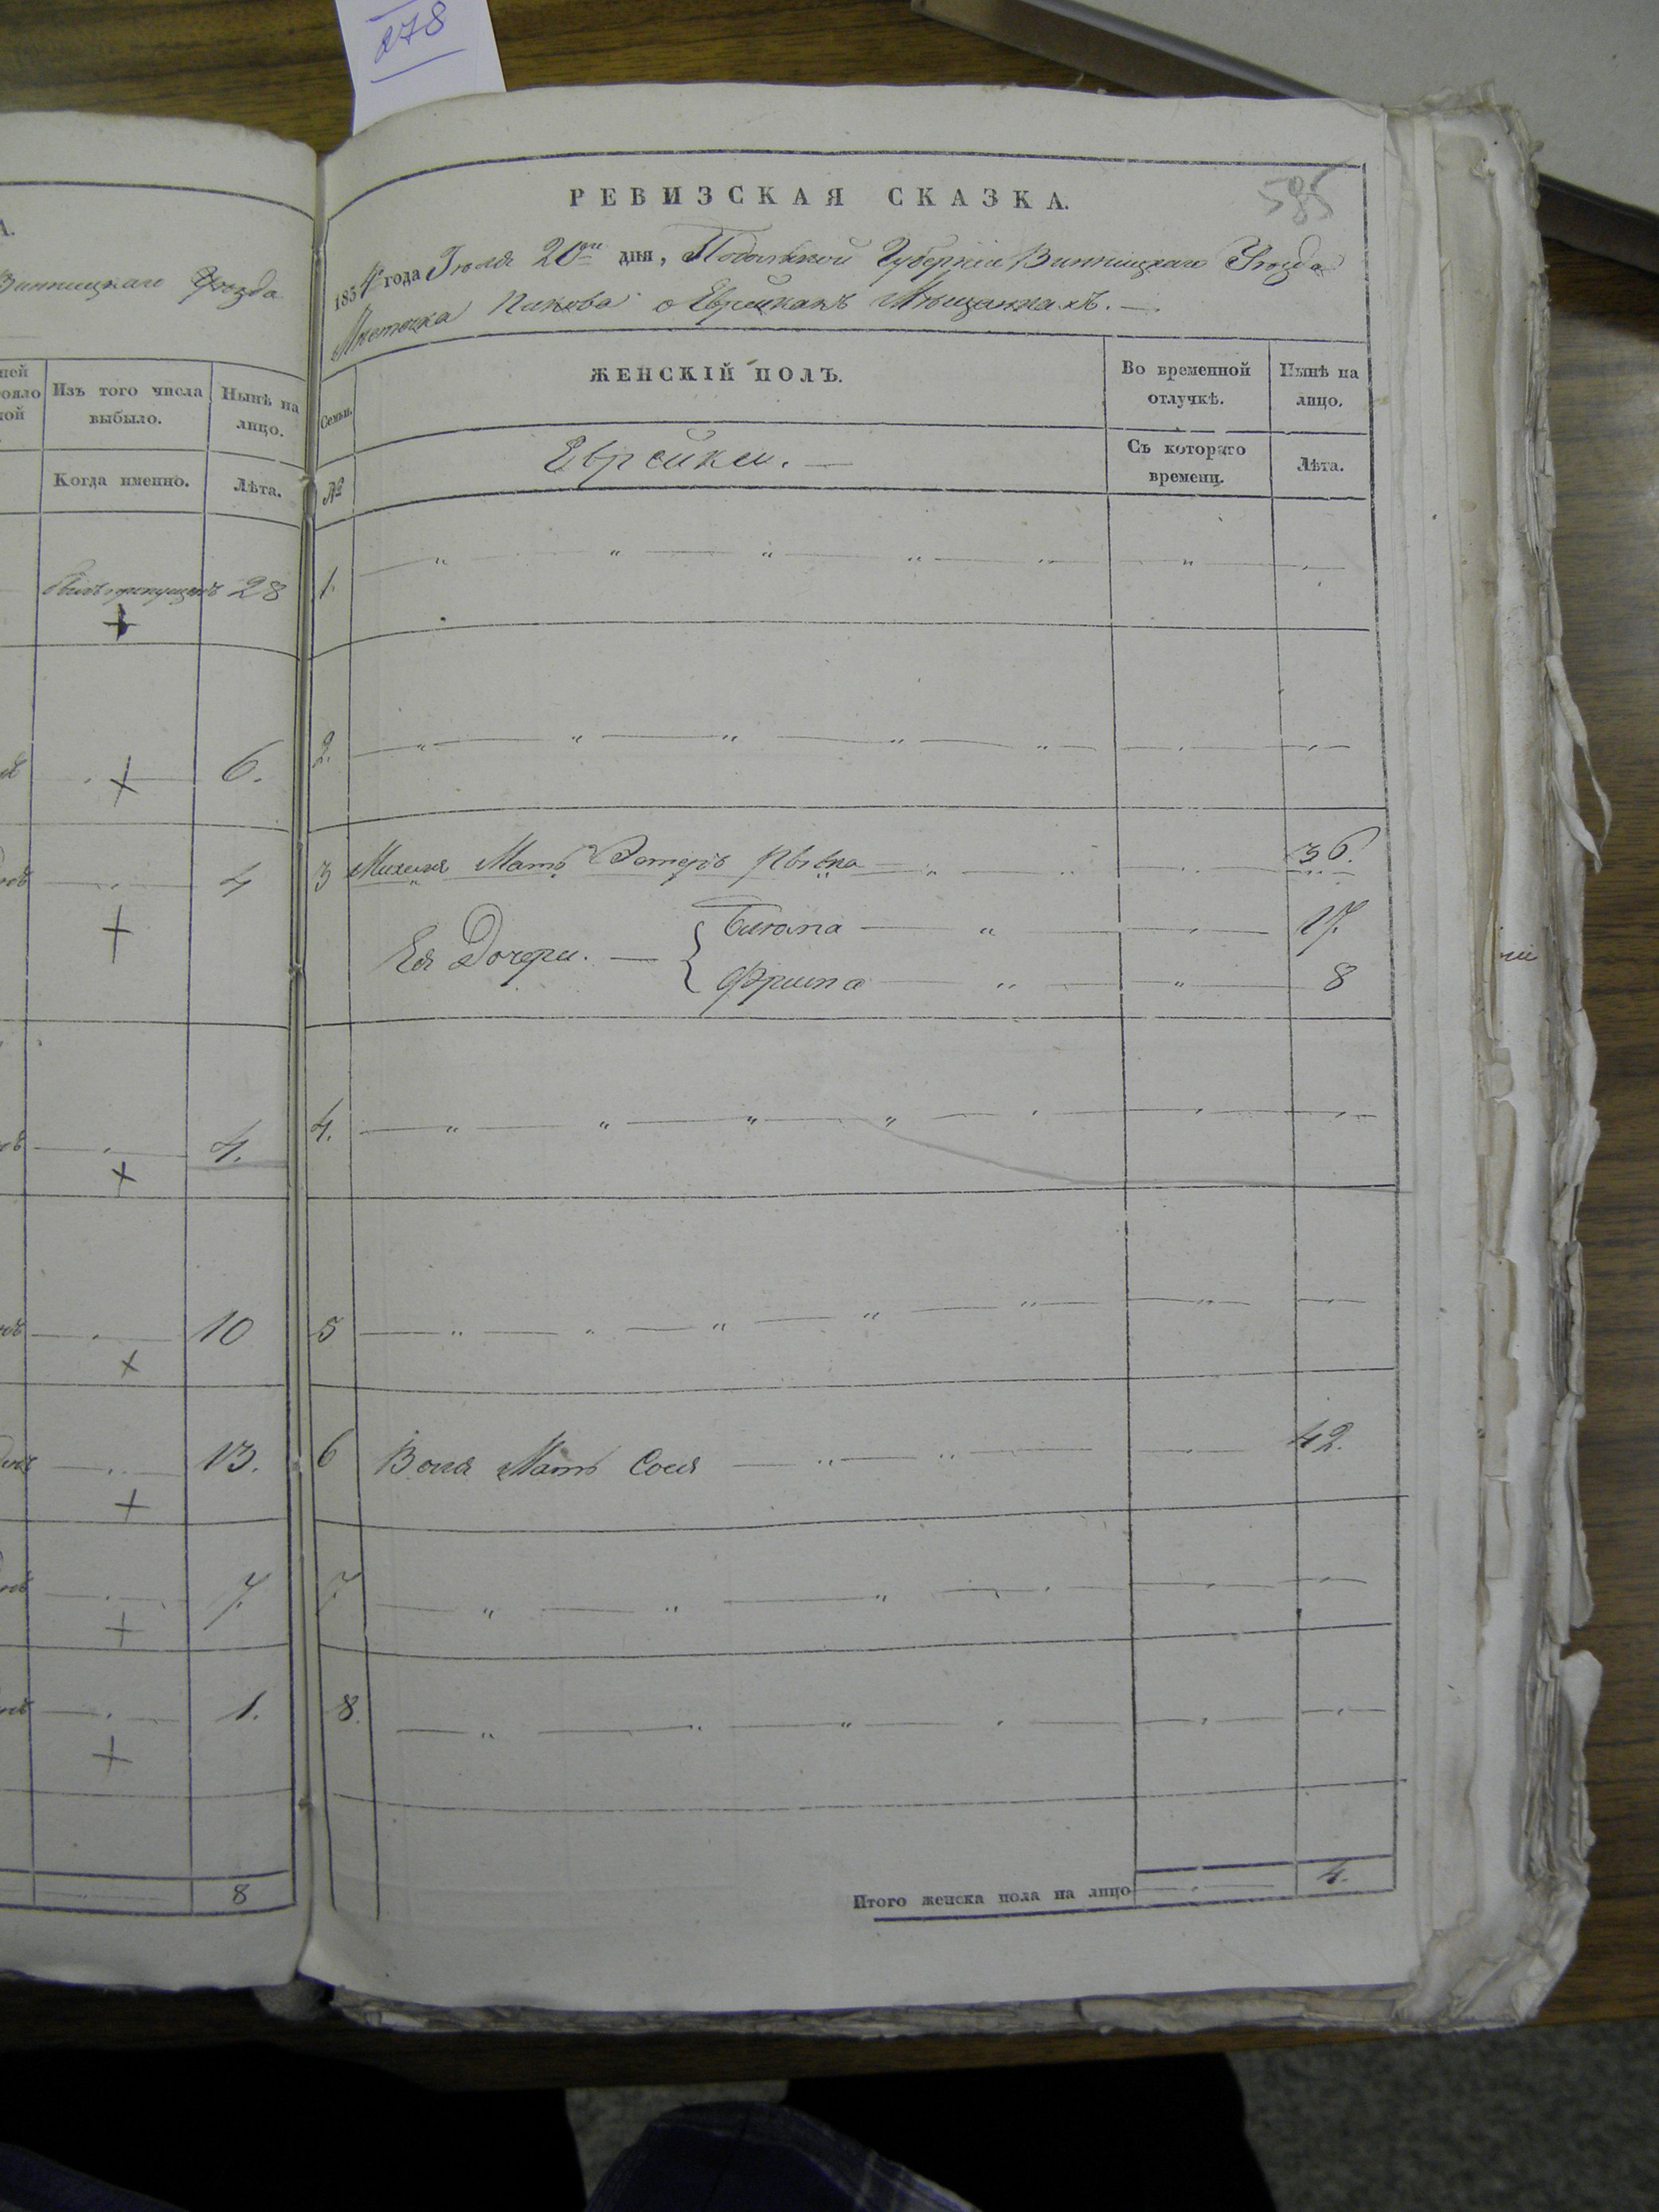 278
А.
Винницкаго Уѣзда
Изъ того числа выбыло.
Нынѣ на лицо.
Когда именно.
Лѣта.
28
6.
4
4.
10
13.
7.
1.
8
585
РЕВИЗСКАЯ СКАЗКА.
1854 года Іюля 20го дня, Подольской Губерніи Винницкаго Уѣзда
Местечка Пикова о Еврейкахъ Мѣщанкахъ.
Семьи.
ЖЕНСКІЙ ПОЛЪ.
Во временной отлучкѣ.
Нынѣ на лицо.
№
Еврейки.
Съ котораго времени.
Лѣта.
1.
2.
3 Михеля Мать Эстеръ Рывка 36.
Ея Дочери. Биюма 17.
Фрима 8
4.
5
6 Воля Мать Сося 42.
7
8.
Итого женска пола на лицо 4.